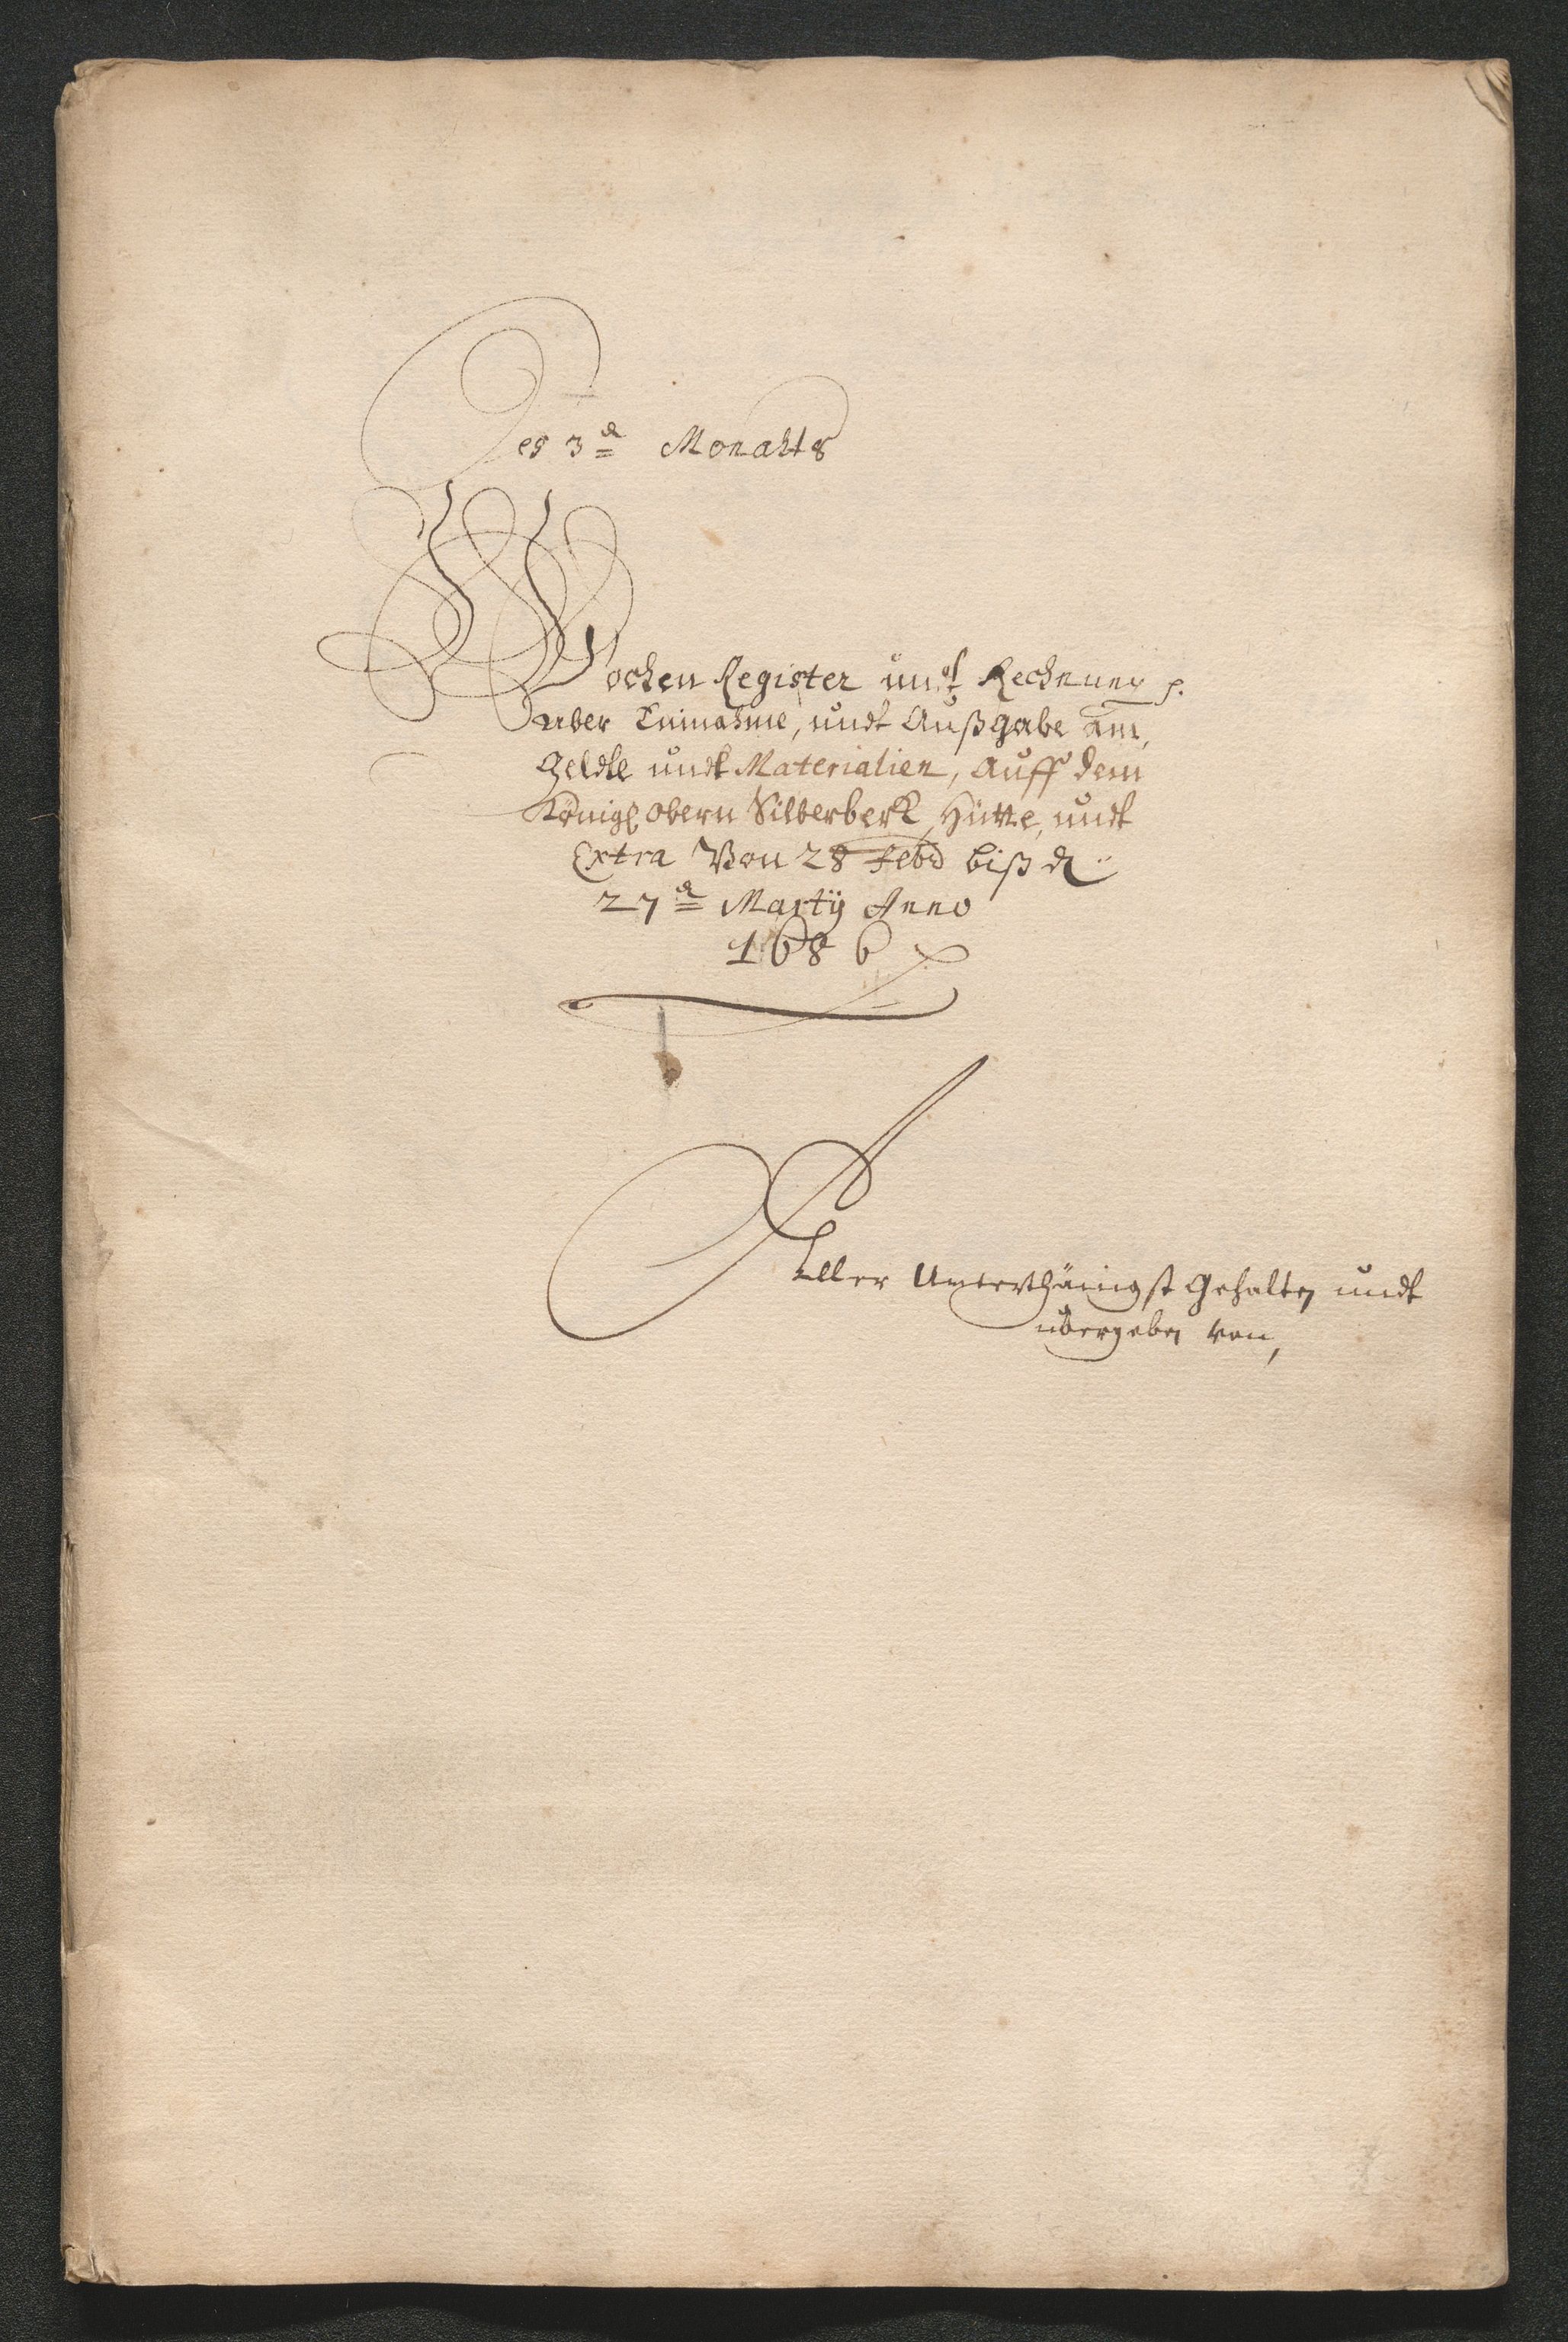 Des 3 d Monahts
Wochen Register undt Rechnung p.
über Einnahme, undt Außgabe am,
Geldte undt Materialien, Auff dem
Königl obern Silberberk, Hütte, undt
Extra Von 28 Febr biß d
27 d Martÿ Anno
1686
Aller Unterthänigst Gehalten undt
übergeben von,